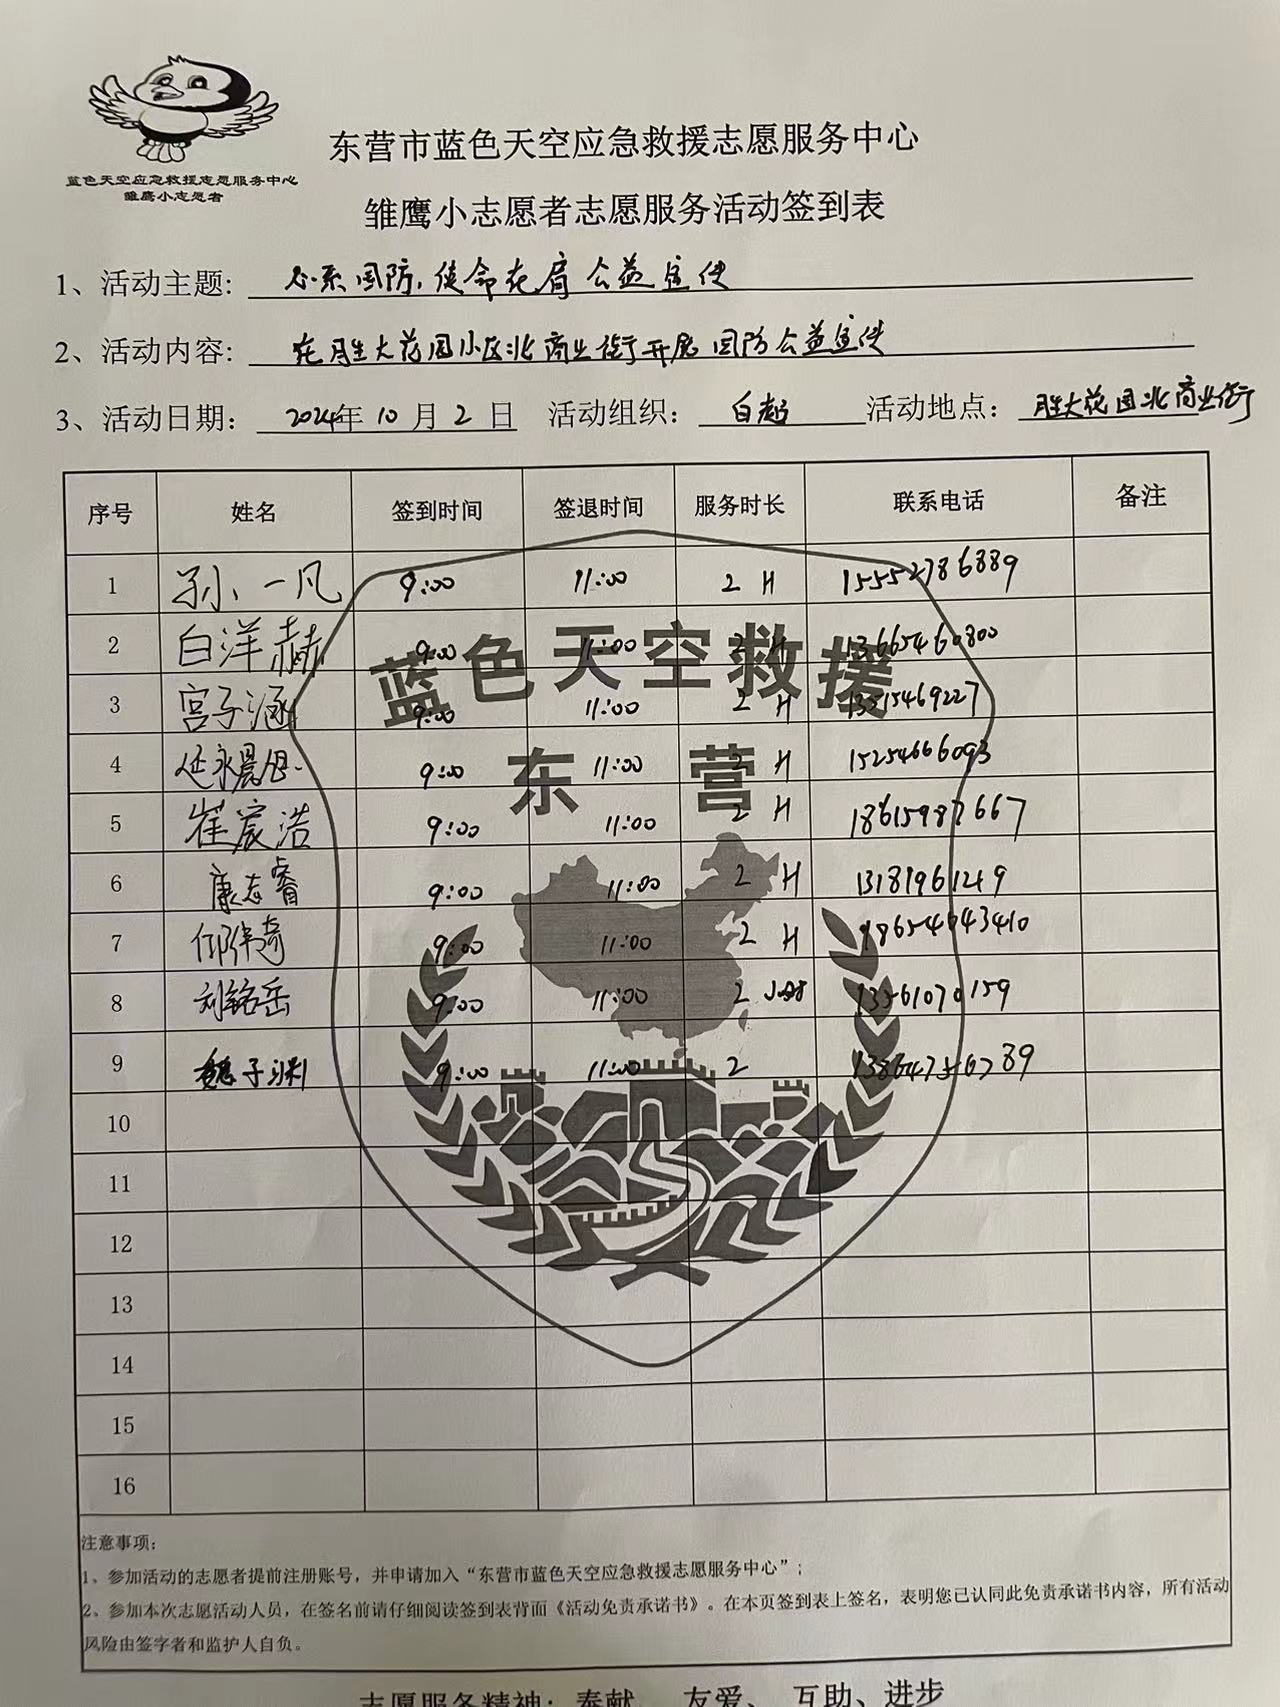 蓝色天空应急救援志愿服务中心
雏鹰小志愿者
东营市蓝色天空应急救援志愿服务中心
雏鹰小志愿者志愿服务活动签到表
1、活动主题: 心系国防,使命在肩 公益宣传
2、活动内容: 在胜大花园小区北商业街开展 国防公益宣传
3、活动日期: 2024年 10 月 2 日 活动组织: 白超 活动地点: 胜大花园北商业街
序号 姓名 签到时间 签退时间 服务时长 联系电话 备注
1 孙一凡 9:00 11:00 2 H 15552786889
2 白洋赫 9:00 11:00 2 H 13665460800
3 宫子涵 9:00 11:00 2 H 13515469227
4 延永晨旭 9:00 11:00 2 H 15254666093
5 崔宸浩 9:00 11:00 2 H 18615987667
6 康志睿 9:00 11:00 2 H 13181961249
7 9:00 11:00 2 H 18654643410
8 刘铭岳 9:00 11:00 2 小时 13561070159
9 魏子渊 9:00 11:00 2
10
11
12
13
14
15
16
蓝色天空救援
东营
注意事项:
1、参加活动的志愿者提前注册账号，并申请加入“东营市蓝色天空应急救援志愿服务中心”;
2、参加本次志愿活动人员，在签名前请仔细阅读签到表背面《活动免责承诺书》。在本页签到表上签名，表明您已认同此免责承诺书内容，所有活动
风险由签字者和监护人自负。
志愿服务精神: 奉献、友爱、互助、进步